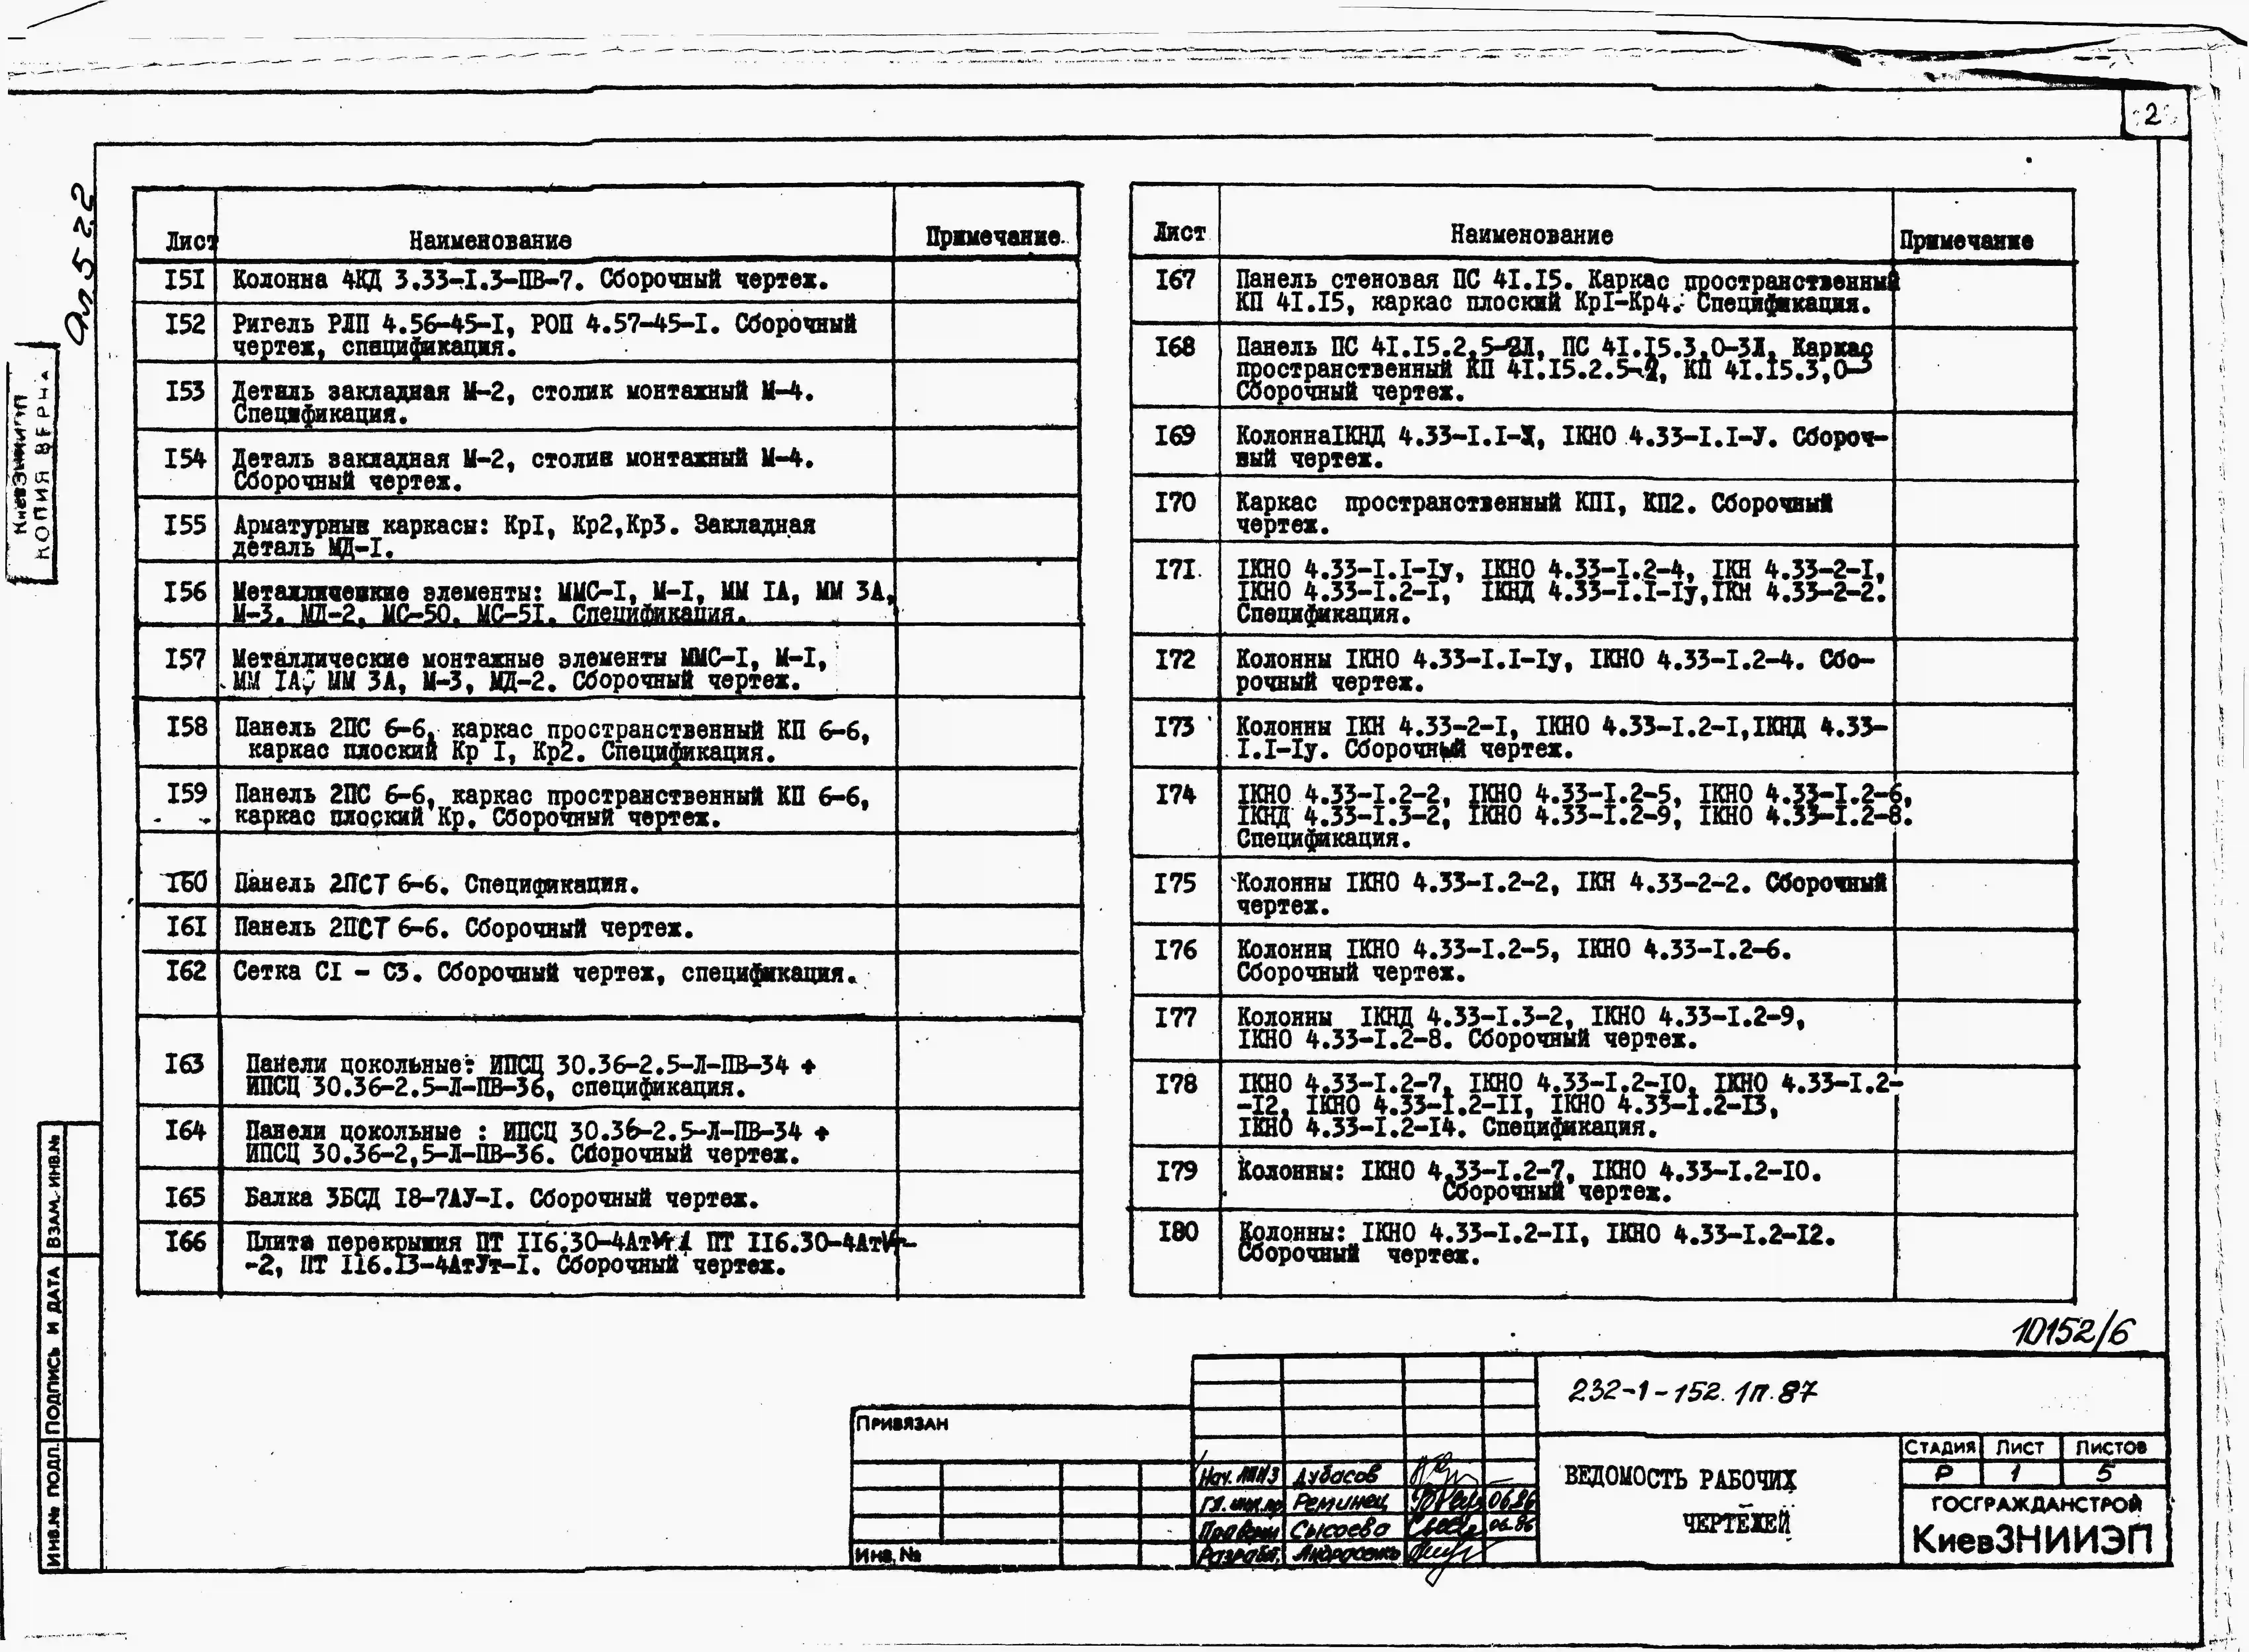 2
Ал. 5 2.2
КиевЗНИИЭП
КОПИЯ ВЕРНА
Лист Наименование Примечание.
I5I Колонна 4КД 3.33-I.3-ПВ-7. Сборочный чертеж.
I52 Ригель РЛП 4.56-45-I, РОП 4.57-45-I. Сборочный
чертеж, спецификация.
I53 Деталь закладная М-2, столик монтажный М-4.
Спецификация.
I54 Деталь закладная М-2, столик монтажный М-4.
Сборочный чертеж.
I55 Арматурные каркасы: КрI, Кр2,Кр3. Закладная
деталь МД-I.
I56 Металлические элементы: ММС-I, М-I, ММ IА, ММ 3А,
М-3. МД-2. МС-50. МС-5I. Спецификация.
I57 Металлические монтажные элементы ММС-I, М-I,
ММ IА, ММ 3А, М-3, МД-2. Сборочный чертеж.
I58 Панель 2ПС 6-6, каркас пространственный КП 6-6,
каркас плоский Кр I, Кр2. Спецификация.
I59 Панель 2ПС 6-6, каркас пространственный КП 6-6,
каркас плоский Кр. Сборочный чертеж.
I60 Панель 2ПСТ 6-6. Спецификация.
I6I Панель 2ПСТ 6-6. Сборочный чертеж.
I62 Сетка СI - С3. Сборочный чертеж, спецификация.
I63 Панели цокольные: ИПСЦ 30.36-2.5-Л-ПВ-34 +
ИПСЦ 30.36-2.5-Л-ПВ-36, спецификация.
I64 Панели цокольные : ИПСЦ 30.36-2.5-Л-ПВ-34 +
ИПСЦ 30.36-2,5-Л-ПВ-36. Сборочный чертеж.
I65 Балка 3БСД I8-7АУ-I. Сборочный чертеж.
I66 Плита перекрытия ПТ II6.30-4АтУт ПТ II6.30-4АтУт-
-2, ПТ II6.I3-4АтУт-I. Сборочный чертеж.
Лист Наименование Примечание
I67 Панель стеновая ПС 4I.I5. Каркас пространственный
КП 4I.I5, каркас плоский КрI-Кр4. Спецификация.
I68 Панель ПС 4I.I5.2,5-2Л, ПС 4I.I5.3,0-3Л, Каркас
пространственный КП 4I.I5.2.5-2, КП 4I.I5.3,0-3
Сборочный чертеж.
I69 КолоннаIКНД 4.33-I.I- IКНО 4.33-I.I-У. Сбороч-
ный чертеж.
I70 Каркас пространственный КПI, КП2. Сборочный
чертеж.
I7I. IКНО 4.33-I.I-Iу, IКНО 4.33-I.2-4, IКН 4.33-2-I,
IКНО 4.33-I.2-I, IКНД 4.33-I.I-Iу,IКН 4.33-2-2.
Спецификация.
I72 Колонны IКНО 4.33-I.I-Iу, IКНО 4.33-I.2-4. Сбо-
рочный чертеж.
I73 Колонны IКН 4.33-2-I, IКНО 4.33-I.2-I,IКНД 4.33-
I.I-Iу. Сборочный чертеж.
I74 IКНО 4.33-I.2-2, IКНО 4.33-I.2-5, IКНО 4.33-I.2-6,
IКНД 4.33-I.3-2, IКНО 4.33-I.2-9, IКНО 4.33-I.2-8.
Спецификация.
I75 Колонны IКНО 4.33-I.2-2, IКН 4.33-2-2. Сборочный
чертеж.
I76 Колонны IКНО 4.33-I.2-5, IКНО 4.33-I.2-6.
Сборочный чертеж.
I77 Колонны IКНД 4.33-I.3-2, IКНО 4.33-I.2-9,
IКНО 4.33-I.2-8. Сборочный чертеж.
I78 IКНО 4.33-I.2-7, IКНО 4.33-I.2-IO, IКНО 4.33-I.2-
-I2, IКНО 4.33-I.2-II, IКНО 4.33-I.2-I3,
IКНО 4.33-I.2-I4. Спецификация.
I79 Колонны: IКНО 4.33-I.2-7, IКНО 4.33-I.2-IO.
Сборочный чертеж.
I80 Колонны: IКНО 4.33-I.2-II, IКНО 4.33-I.2-I2.
Сборочный чертеж.
10152/6
232-1-152.1п.87
Привязан
Инв. №
Нач. Дубасов
Гл. инж.пр Реминец 06.86
Провер Сысоева 06.86
Разраб.
ВЕДОМОСТЬ РАБОЧИХ
ЧЕРТЕЖЕЙ
Стадия Лист Листов
Р 1 5
ГОСГРАЖДАНСТРОЙ
КиевЗНИИЭП
Инв.№ подл. Подпись и дата Взам. инв.№